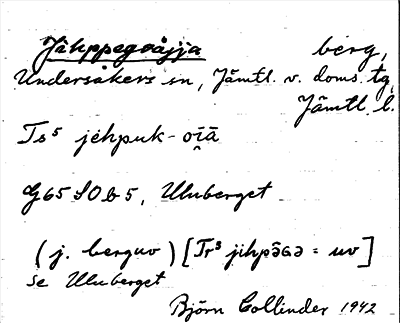 Jähppegåajja berg,
Undersåkers sn, Jämtl. v. doms. tg,
Jämtl. l.
Ts⁵ jèhpuk-o̯īā
G65 SO b 5, Uluberget
(j. berguv) [Tr³ jihpə̂Gə = uv]
se Uluberget
Björn Collinder 1942